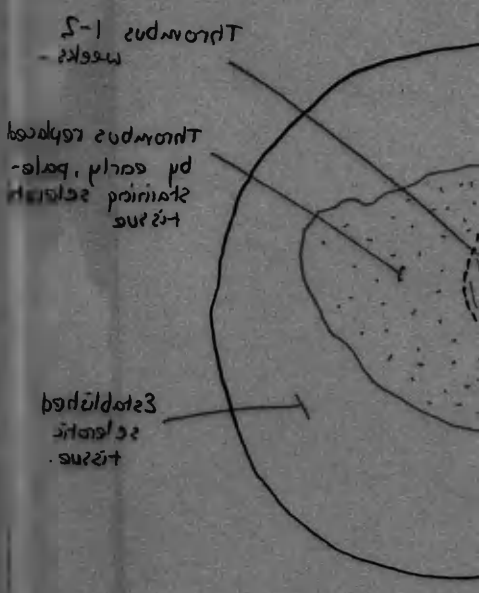 Thrombus 1-2
weeks -
Thrombus replaced
by early, pale-
staining sclerotic
tissue
Established
sclerotic
tissue.